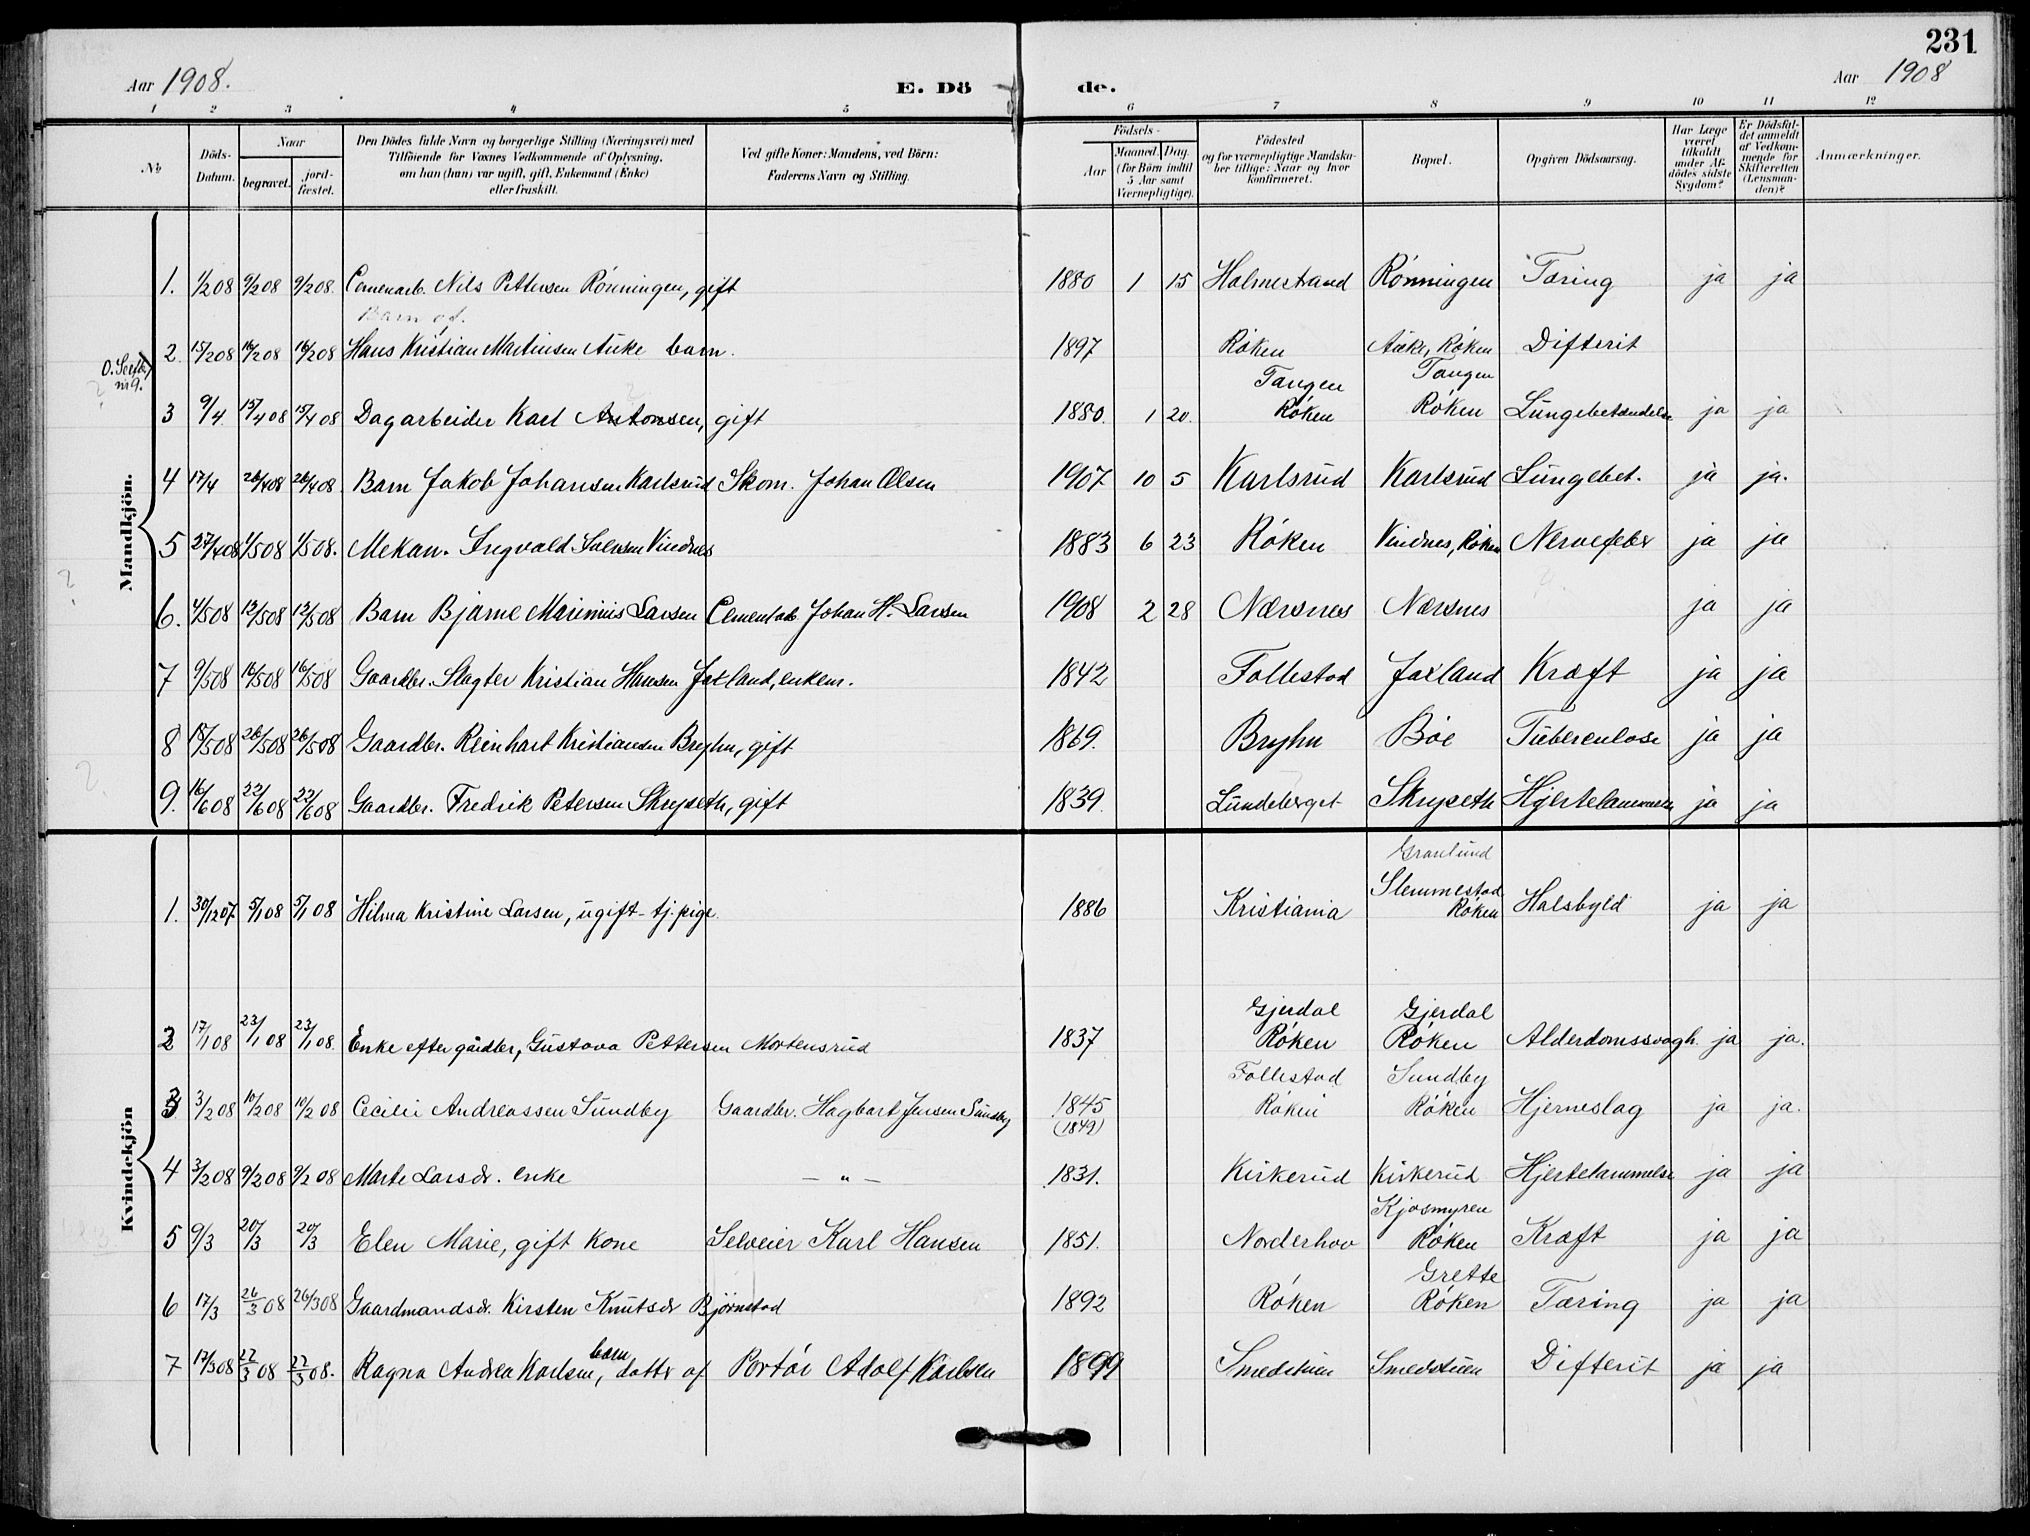 231
Aar 1908. E. Dö de. Aar 1908
1 2 3 4 5 6 7 8 9 10 11 12
No
Döds-Datum.
Naar
begravet.
jord-fæstet.
Den Dödes fulde Navn og borgerlige Stilling (Næringsvei) med
Tilföiende for Voxnes Vedkommende af Oplysning,
om han (hun) var ugift, gift, Enkemand (Enke)
eller fraskilt.
Ved gifte Koner: Mandens, ved Börn:
Faderens Navn og Stilling.
Födsels-
Aar
Maaned. Dag.
(for Börn indtil
5 Aar samt
Værnepligtige).
Födested
og for værnepligtige Mandska-
ber tillige: Naar og hvor
konfirmeret.
Bopæl.
Opgiven Dödsaarsag.
Har Læge
været
tilkaldt
under Af-
dödes sidste
Sygdom?
Er Dödsfal-
det anmeldt
af Vedkom-
mende for
Skifteretten
(Lensman-
den)?
Anmærkninger.
Mandkjön.
1. 1/2 08 9/2 08 9/2 08. Cemenarb. Nils Pettersen Rönningen, gift 1880 1 15 Holmestrand Rönningen Tæring ja ja
Barn af.
2. 15/2 08 16/2 08 16/2 08 Hans Kristian Martinsen Auke barn. 1897 Röken Auke, Röken Difterit
nr 9.
3 9/4 15/4 08 15/4 08 Dagarbeider Karl Antonsen, gift 1880. 1 20. Tangen Röken Tangen Röken Lungebetændelse ja ja
4 17/4 26/4 08 26/4 08 Barn Jakob Johansen Karlsrud Skom. Johan Olsen 1907 10 5 Karlsrud Karlsrud Lungebet. ja ja.
5 27/4 08 1/5 08 1/5 08. Mekan. Ingvald Vindnes 1883 6 23 Röken Vindnes, Röken Nervefeber ja ja
6. 4/5 08 13/5 08 13/5 08 Barn Bjarne Marinius Larsen Cementarb. Johan H. Larsen 1908 2 28 Nærsnes Nærsnes ja ja
7 9/5 08 16/5 08 16/5 08 Gaardbr. Slagter Kristian Hansen Jæland, enkem. 1842 Follestad Jæland Kræft ja ja
8 18/5 08 26/5 08 26/5 08 Gaardbr. Reinhart Kristiansen Bryhn, gift 1869. Bryhn Böe Tuberculose ja ja
9. 16/6 08 22/6 08 22/6 08 Gaardbr. Fredrik Petersen Skryseth, gift 1839. Lundeberget Skryseth Hjertelammelse ja ja
Kvindekjön
1. 30/12 07 5/1 08 5/1 08 Hilma Kristine Larsen, ugift - tj.pige 1886 Kristiania Granlund Slemmestad Röken Halsbyld ja ja
2 17/1 08 23/1 08 23/1 08 Enke efter gårdbr, Gustava Pettersen Mortensrud 1837 Gjerdal Röken Gjerdal Röken Alderdomssvagh. ja ja.
3 3/2 08 10/2 08 10/2 08 Cecilie Andreassen Sundby Gaardbr. Hagbart Jensen Sundby 1845 (1849) Follestad Röken Sundby Röken Hjerneslag ja ja.
4 3/2 08 9/2 08 9/2 08 Marte Larsdr. enke — " — 1831. Kirkerud Kirkerud Hjertelammelse ja ja
5 9/3 20/3 20/3 Elen Marie, gift kone Selveier Karl Hansen 1851. Norderhov Kjosmyren Röken Kræft ja ja
6 17/3 26/3 08 26/3 08 Gaardmandsdr. Kirsten Knutsdr Bjørnstad 1892 Röken Grette Röken Tæring ja ja
7 17/3 08 22/3 08 22/3 08. Ragna Andrea Karlsen, barn datter af Portör Adolf Karlsen 1899 Smedstuen Smedstuen Difterit ja ja